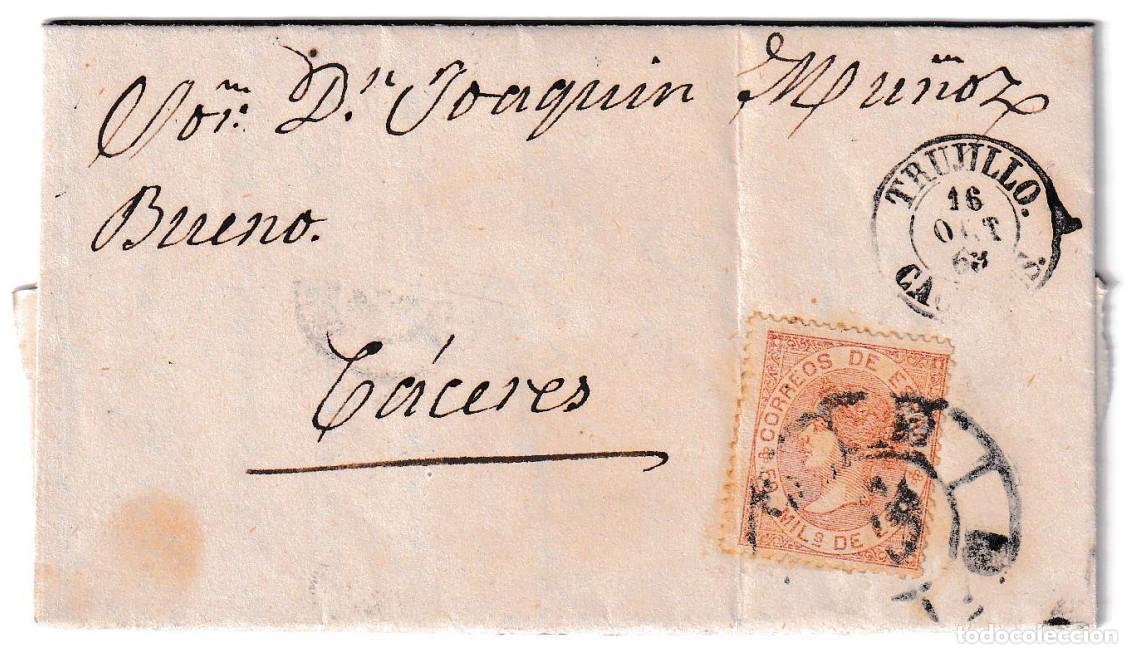 Sor. Dn. Joaquin Muñoz
Bueno.
Cáceres
TRUJILLO.
16
OCT
CORREOS DE
50 MILs DE
todocoleccion